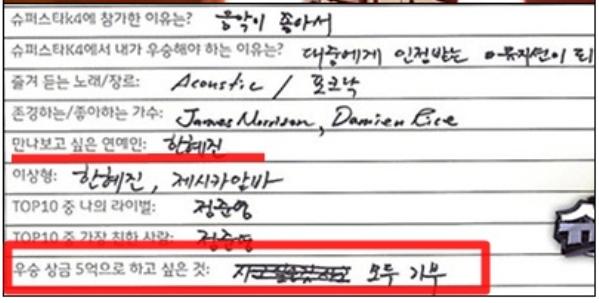 슈퍼스타k4에 참가한 이유는? 음악이 좋아서
슈퍼스타K4에서 내가 우승해야 하는 이유는? 대중에게 인정받는 뮤지션이 되
즐겨 듣는 노래/장르: Acoustic / 포크락
존경하는/좋아하는 가수: James Morrison, Damien Rice
만나보고 싶은 연예인: 한혜진
이상형: 한혜진, 제시카알바
TOP10 중 나의 라이벌: 정준영
TOP10 중 가장 친한 사람: 정준영
우승 상금 5억으로 하고 싶은 것: 모두 기부